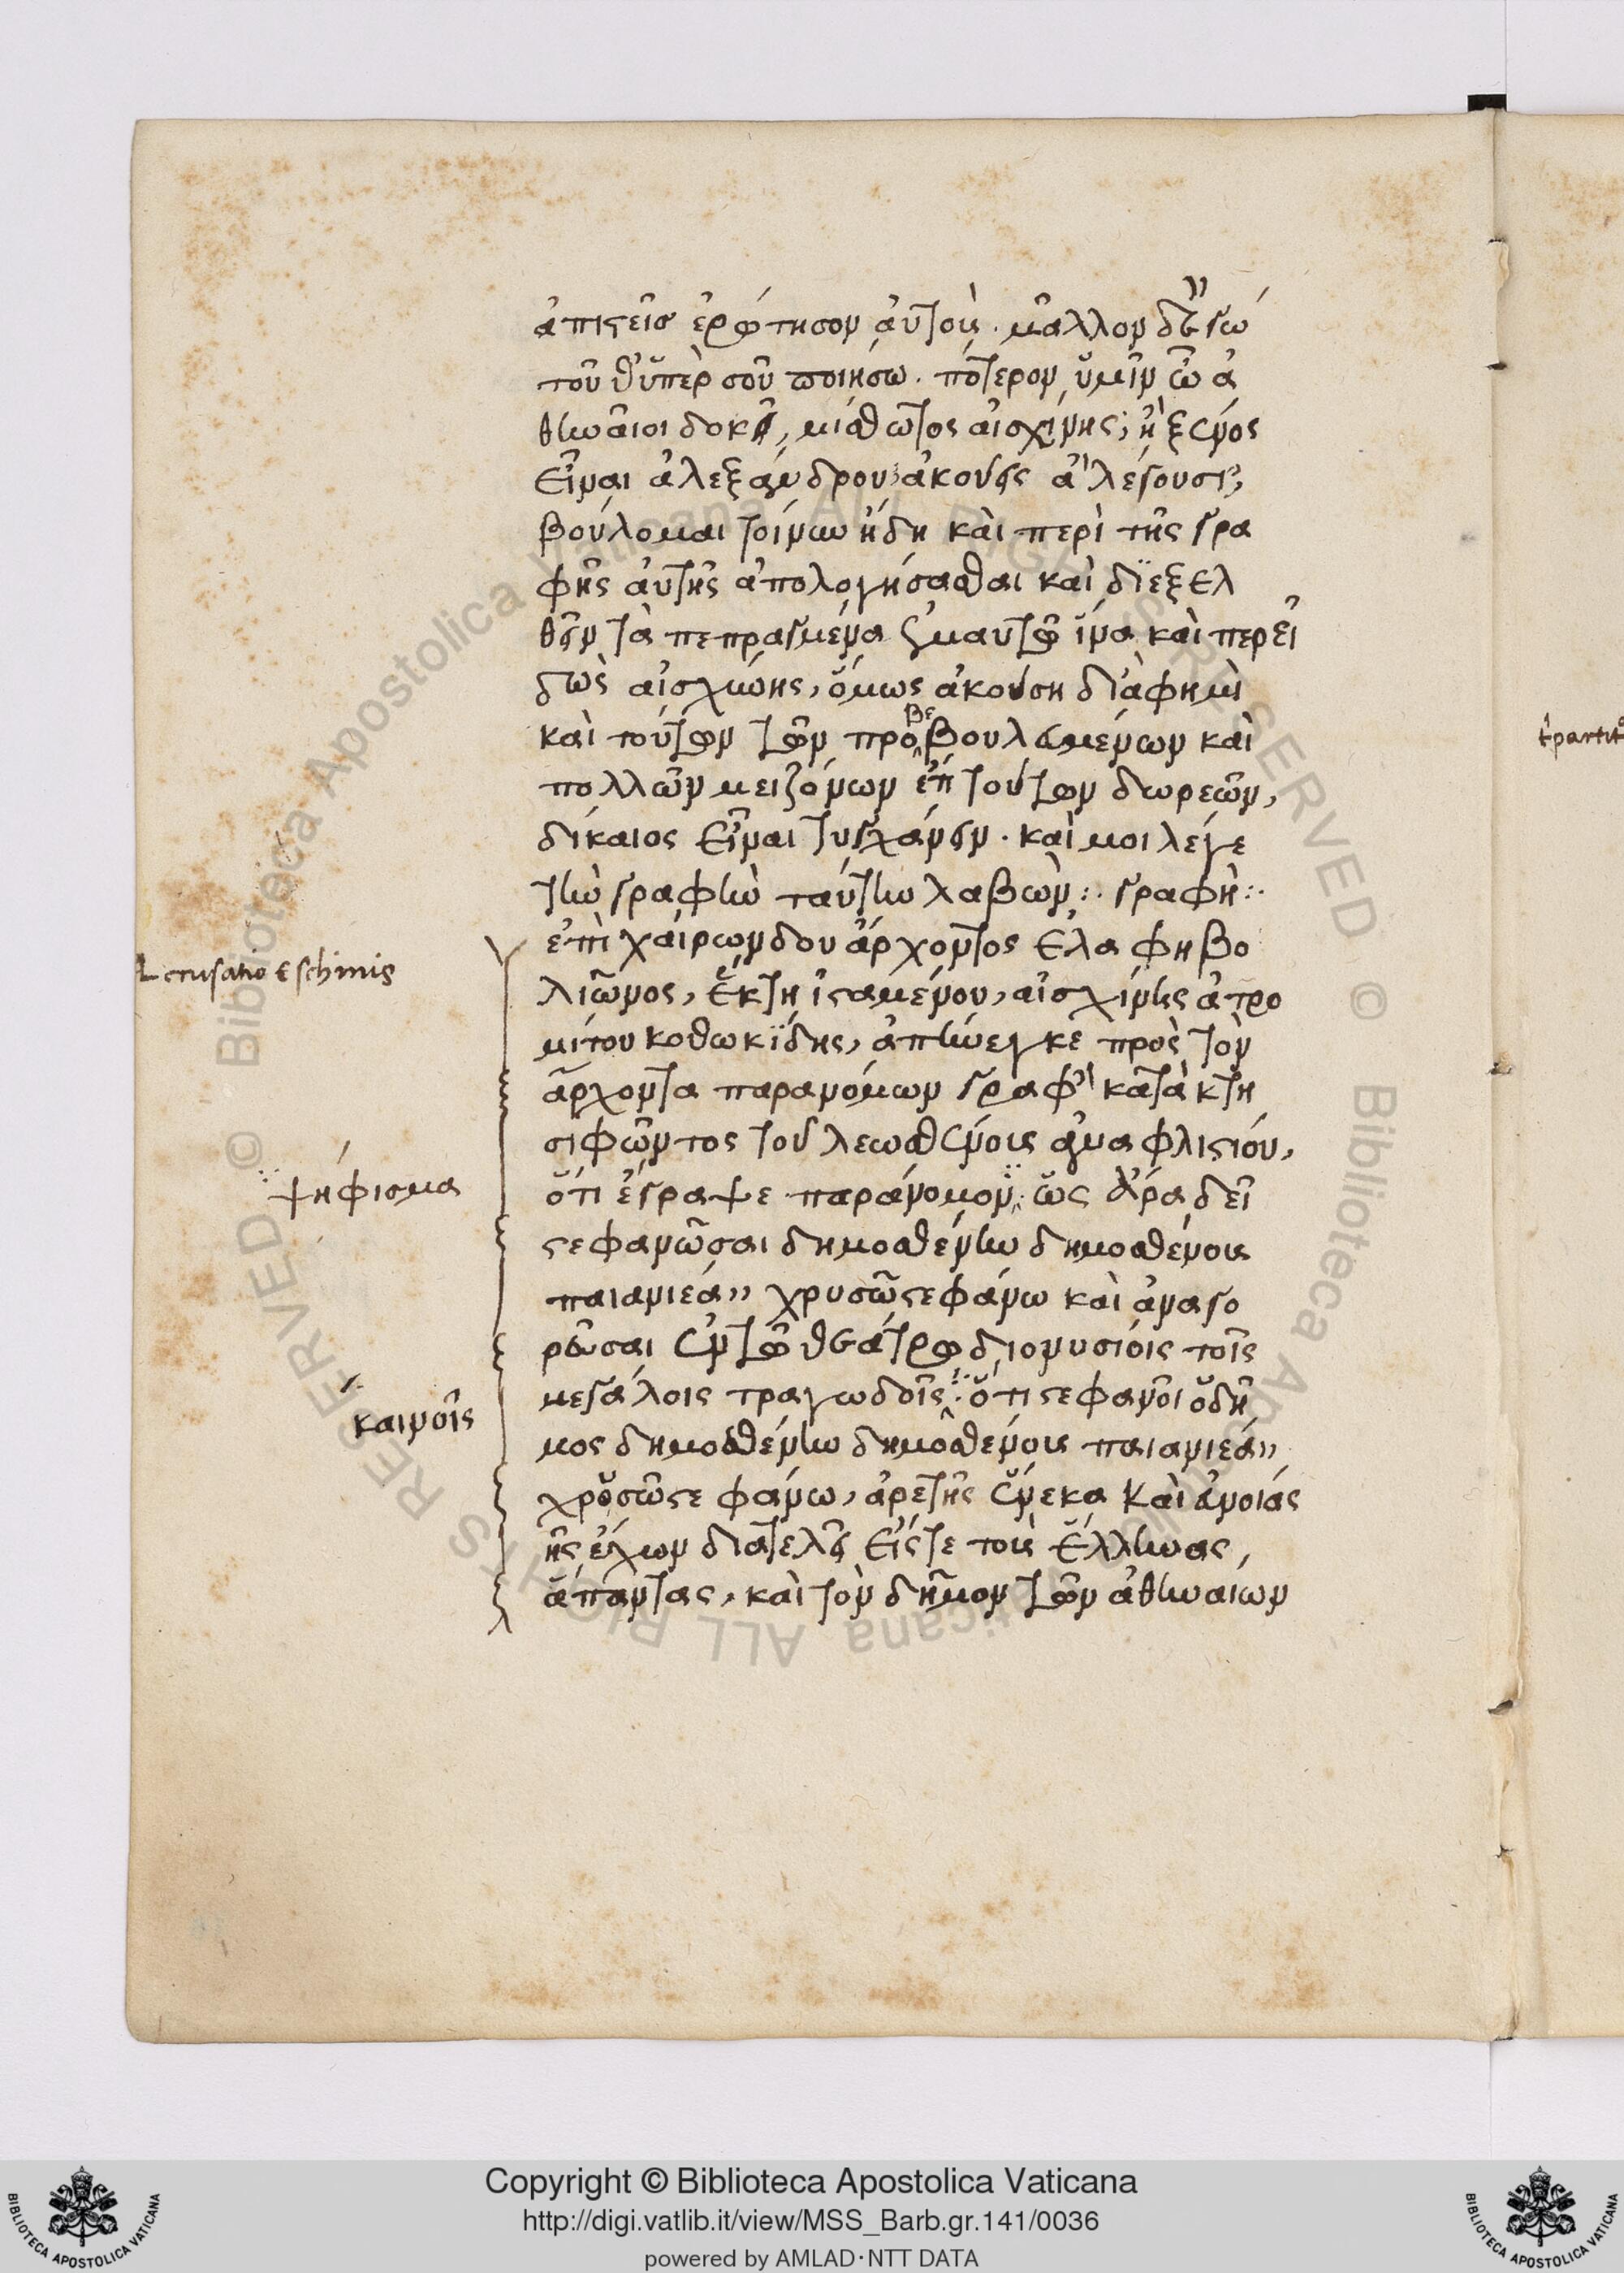 ἀπιστεῖς ἐρώτησον αὐτούς. μᾶλλον δ' ἐγὼ
τοῦθ' ὑπὲρ σοῦ ποιήσω. πότερον ὑμῖν ὦ ἀ
θηναῖοι δοκεῖ, μισθωτὸς αἰσχίνης; ἢ ξένος
εἶναι ἀλεξάνδρου; ἀκούεις ἃ λέγουσι;
βούλομαι τοίνυν ἤδη καὶ περὶ τῆς γρα
φῆς αὐτῆς ἀπολογήσασθαι καὶ διεξελ
θεῖν τὰ πεπραγμένα ἐμαυτῷ ἵνα καὶ περ εἰ
δὼς αἰσχίνης, ὅμως ἀκούση δι' ἅ φημὶ
καὶ τούτων τῶν προβεβουλευμένων καὶ
πολλῶν μειζόνων ἔτι τούτων δωρεῶν,
δίκαιος εἶναι τυγχάνειν. καί μοι λέγε
τὴν γραφὴν ταύτην λαβών :. γραφή :.
ἐπὶ χαιρώνδου ἄρχοντος ἐλαφηβο
λιῶνος, ἕκτη ἱσταμένου, αἰσχίνης ἀτρο
μήτου κοθωκίδης, ἀπήνεγκε πρὸς τὸν
ἄρχοντα παρανόμων γραφὴ κατὰ κτη
σιφῶντος τοῦ λεωσθένους ἀναφλιστίου,
ὅτι ἔγραψε παράνομον ὡς ἄρα δεῖ
στεφανῶσαι δημοσθένην δημοσθένους
παιανιέα χρυσῶ στεφάνω καὶ ἀναγο
ρεῦσαι ἐν τῷ θεάτρῳ διονυσίοις τοῖς
μεγάλοις τραγωδοῖς ὅτι στεφανοῖ ὁ δῆ
μος δημοσθένην δημοσθένους παιανιέα
χρυσῶ στεφάνω, ἀρετῆς ἕνεκα καὶ εὐνοίας
ἧς ἔχων διατελεῖ εἴς τε τοὺς ἕλληνας,
ἅπαντας, καὶ τὸν δῆμον τῶν ἀθηναίων
Accusatio Eschinis
ψήφισμα
καινοῖς
Copyright © Biblioteca Apostolica Vaticana
http://digi.vatlib.it/view/MSS_Barb.gr.141/0036
powered by AMLAD·NTT DATA